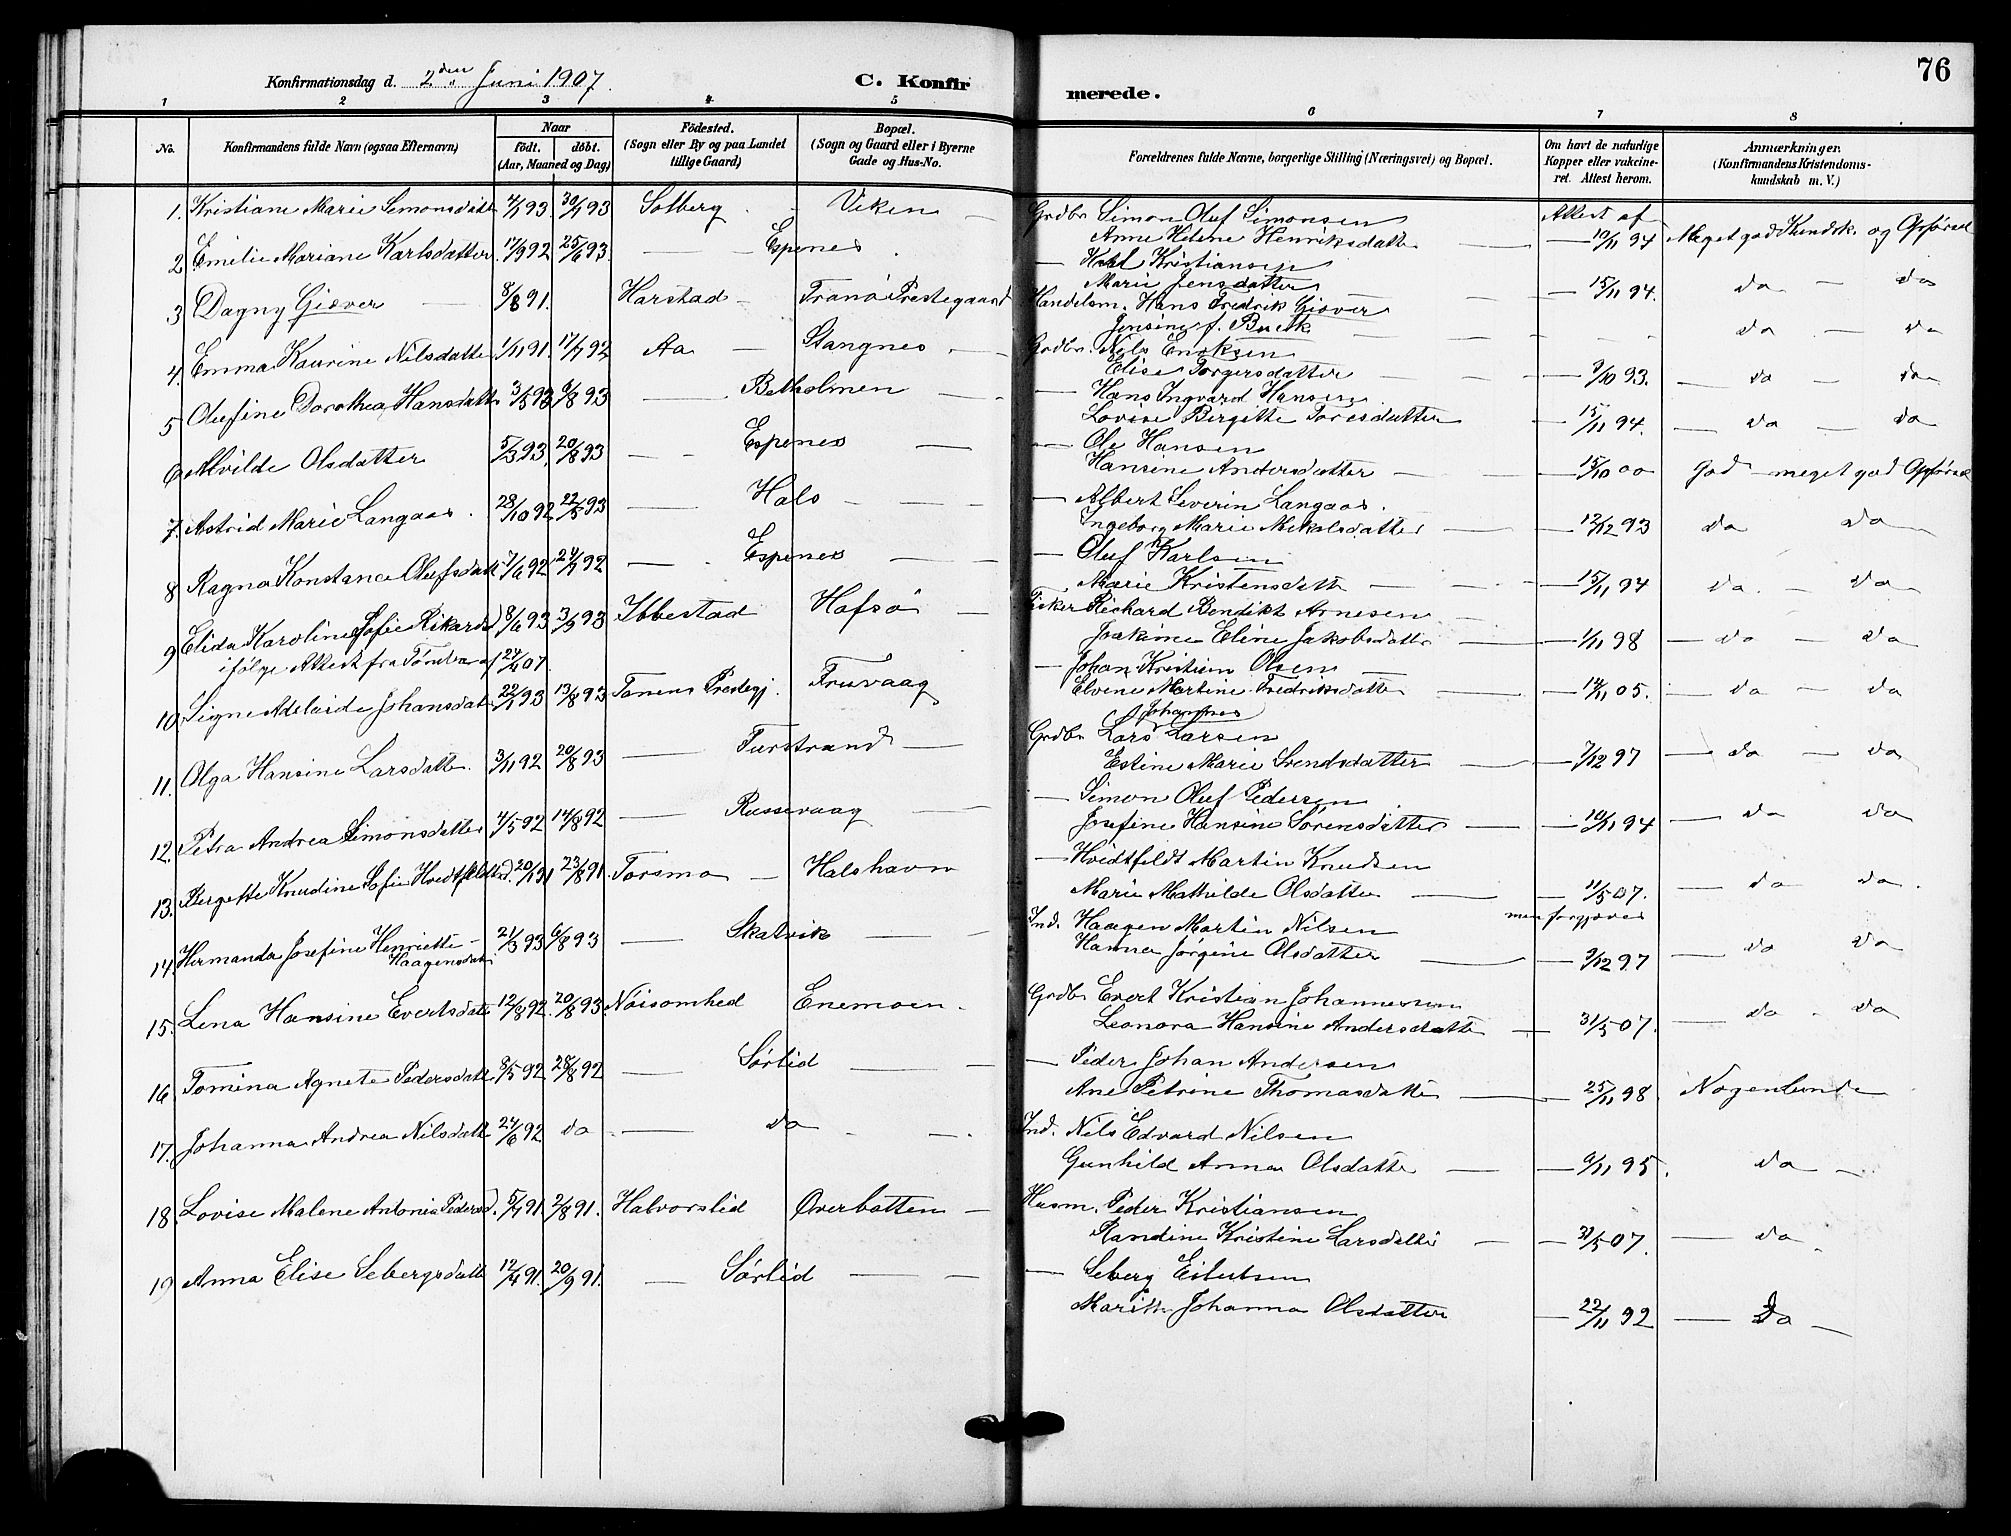 76
Konfirmationsdag d. 2den Juni 1907.
C. Konfirmerede.
1 2 3 4 5 6 7 8
No.
Konfirmandens fulde Navn (ogsaa Efternavn)
Naar
födt. döbt.
(Aar, Maaned og Dag)
Födested.
(Sogn eller By og paa Landet
tillige Gaard)
Bopæl.
(Sogn og Gaard eller i Byerne
Gade og Hus-No.
Forældrenes fulde Navne, borgerlige Stilling (Næringsvei) og Bopæl.
Om havt de naturlige
Kopper eller vakcine-
ret. Attest herom.
Anmærkninger.
(Konfirmandens Kristendoms-
kundskab m. V.)
1. Kristiane Marie Simonsdatt 30/7 93 Solberg Viken Grdbr Simon Oluf Simonsen Attest af
Anne Helene Henriksdatter — 10/11 94 Meget god Kundsk. og Opførsel
2 Emilie Mariane Karlsdatter 17/9 92 25/6 93 — Espenes — Karl Kristiansen
Marie Jensdatter — 15/11 94. do — do
3 Dagny Giæver — 8/8 91. Harstad — Tranö Prestegaard Handelsm. Hans Fredrik Giæver
Jensine f. Buck — do — do
4. Emma Kaurine Nilsdatter 1/11 91. 17/7 92 Aa — Stangnes Grdbr. Nils Enoksen
Elise Torgersdatter — 9/10 93. — do — do
5 Olufine Dorothea Hansdatt 3/5 93 6/8 93 — Betholmen — Hans Ingvard Hansen
Lovise Bergitte Toresdatter — 15/11 94. — do — do
6 Alvilde Olsdatter 5/3 93. 20/8 93 — Espenes — Ole Hansen
Hansine Andersdatter — 15/10 00 God — meget god Opførsel
7. Astrid Marie Langaas. 28/10 92 22/5 93 — Hals — Albert Severin Langaas.
Ingeborg Marie Mikalsdatter — 12/12 93 do do
8 Ragna Konstance Olufsdatt 7/6 92 24/7 92 — Espenes — Oluf Karlsen
Marie Kristensdatt — 15/11 94 do. — do
9 Elida Karoline Sofie Rikardsd 8/6 93 3/9 93 Ibbestad Hofsö — Fisker Rickard Bendikt Arnesen
ifölge Attest fra Tranö af 07. Joakime Eline Jakobsdatter — 1/11 98 — do — do
10. Signe Adelaide Johansdatt 93 13/8 93 Tranens Prestegj. Fruvaag — Johan Kristian Olsen
Elvine Martine Fredriksdatter — 14/11 05. — do — do
11. Olga Hansine Larsdatter. 3/11 92 20/8 93 — Furstrand — Grdbr Lars Johannes Larsen
Estine Marie Svendsdatter — 7/12 97 — do — do
12. Petra Andrea Simonsdatter 4/5 92 14/8 92 — Russevaag — Simon Oluf Pedersen
Josefine Hansine Sörensdatter — 10/11 94 — do do
13. Bergette Knudine Sofie Hvidtfeldtsd. 23/8 91. Torsmo — Halshavn — Hvidtfeldt Martin Knudsen
Marie Mathilde Olsdatter — 11/5 07. — do do.
men forgjæves
14. Hermanda Josefine Henriette — 21/3 93 6/8 93 — Skatvik — Ind. Haagen Martin Nilsen
Haagensdatt Hanna Jørgine Olsdatter — 9/12 97 — do do
15. Lena Hansine Evertsdatt 12/8 92. 20/8 93. Nöisomhed Enemoen. Grdbr Evert Kristian Johannessen
Leonora Hansine Andersdatter — 31/5 07. — do do
16. Tomina Agnete Pedersdatt. 8/5 92 28/8 92 — Sörlid — Peder Johan Andersen
Ane Petrine Thomasdatter — 25/11 98. Nogenlunde
17. Johanna Andrea Nilsdatt 24/6 92 do. — do — Ind. Nils Edvard Nilsen
Gunhild Anna Olsdatter — 9/11 95. do —
18. Lovise Malene Antonie Pedersd. 5/4 91. 2/8 91. Halvorslid Överbotten — Husm. Peder Kristiansen
Randine Kristine Larsdatter — 31/5 07. — do
19 Anna Elise Sebergsdatt 12/4 91. 20/9 91. — Sörlid — Seberg Eilertsen
Marith Johanna Olsdatter — 22/11 92 — Do —